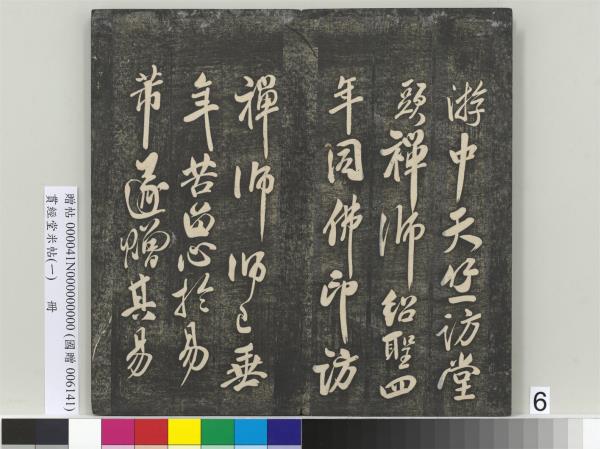 游中天竺訪堂
頭禪師紹聖四
年同佛印訪
禪師師已垂
年苦留心於易
芾遂贈其易
贈帖 000041N000000000 (國贈 006141)
貫經堂米帖(一) 冊
6